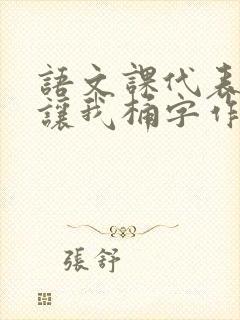 語文課代表
讓我桶字作
張舒